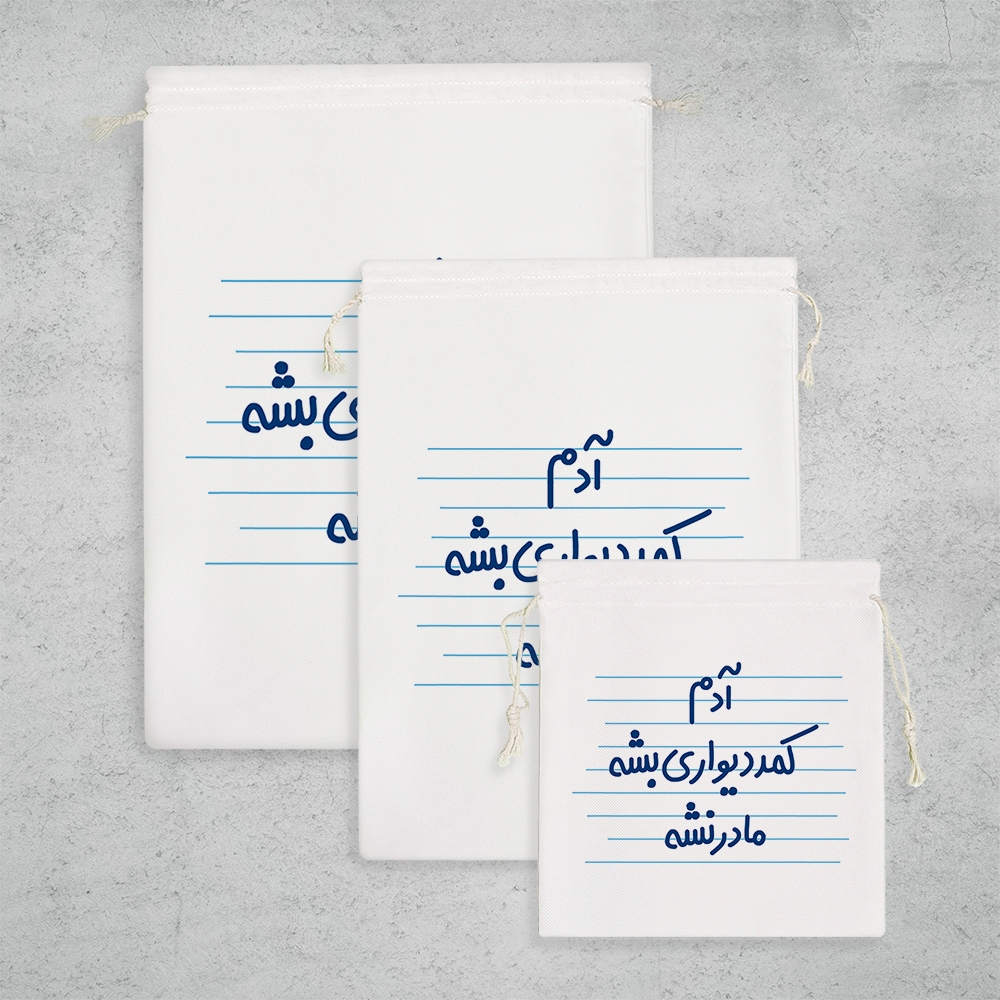 ی بشه
آدم
کمد دیواری بشه
آدم
کمد دیواری بشه
مادر نشه